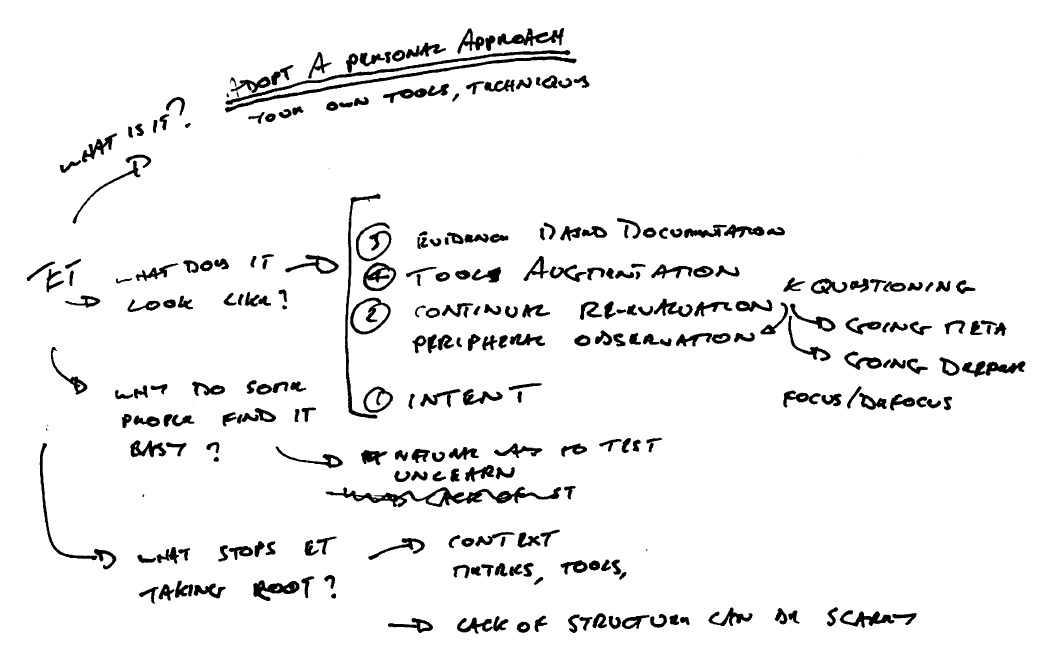 ADOPT A PERSONAL APPROACH
YOUR OWN TOOLS, TECHNIQUES
WHAT IS IT?
ET
WHAT DOES IT
LOOK LIKE?
③ EVIDENCE BASED DOCUMENTATION
④ TOOLS AUGMENTATION
② CONTINUAL RE-EVALUATION
PERIPHERAL OBSERVATION
① INTENT
QUESTIONING
GOING META
GOING DEEPER
FOCUS/DEFOCUS
WHY DO SOME
PEOPLE FIND IT
EASY?
NATURAL WAY TO TEST
UNLEARN
LACK OF ST
WHAT STOPS ET
TAKING ROOT?
CONTEXT
METRICS, TOOLS,
LACK OF STRUCTURE CAN BE SCARY